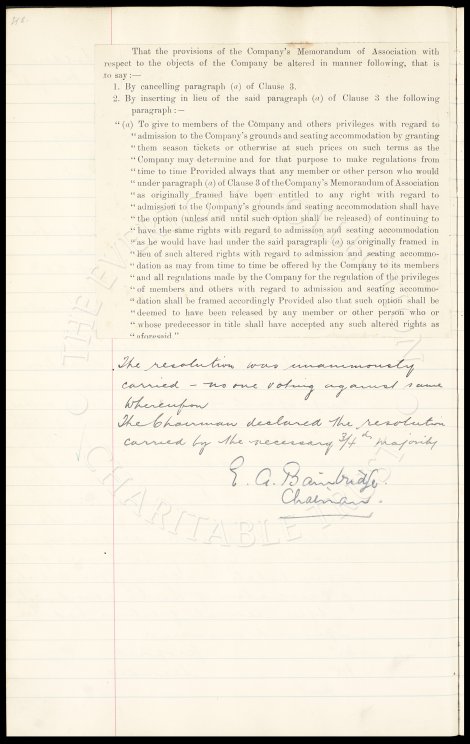 That the provisions of the Company's Memorandum of Association with
respect to the objects of the Company be altered in manner following, that is
to say :—
1. By cancelling paragraph (a) of Clause 3.
2. By inserting in lieu of the said paragraph (a) of Clause 3 the following
paragraph :—
"(a) To give to members of the Company and others privileges with regard to
"admission to the Company's grounds and seating accommodation by granting
"them season tickets or otherwise at such prices on such terms as the
"Company may determine and for that purpose to make regulations from
"time to time Provided always that any member or other person who would
"under paragraph (a) of Clause 3 of the Company's Memorandum of Association
"as originally framed have been entitled to any right with regard to
"admission to the Company's grounds and seating accommodation shall have
"the option (unless and until such option shall be released) of continuing to
"have the same rights with regard to admission and seating accommodation
"as he would have had under the said paragraph (a) as originally framed in
"lieu of such altered rights with regard to admission and seating accommo-
"dation as may from time to time be offered by the Company to its members
"and all regulations made by the Company for the regulation of the privileges
"of members and others with regard to admission and seating accommo-
"dation shall be framed accordingly Provided also that such option shall be
"deemed to have been released by any member or other person who or
"whose predecessor in title shall have accepted any such altered rights as
"aforesaid"
The resolution was unanimously
carried – no one voting against same
Whereupon
The Chairman declared the resolution
carried by the necessary 3/4th majority
E. A. Bainbridge.
Chairman.
CHARITABLE